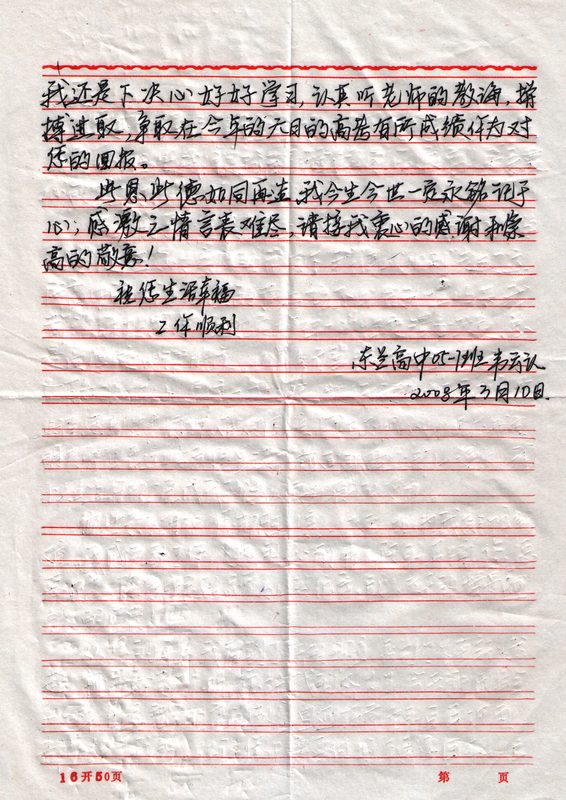 我还是下决心好好学习，认真听老师的教诲，拼
搏进取，争取在今年的六月的高考有所成绩作为对
您的回报。
此恩此德如同再造，我今生今世一定永铭记于
心；感激之情言表难尽，请接我衷心的感谢和崇
高的敬意！
祝您生活幸福
工作顺利
东兰高中05-1班 韦云
2008年3月10日
16开50页
第 页